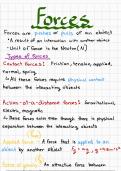 Forces
Forces are pushes or pulls of an object
• A result of an interaction with another object
• Unit of Force is the Newton (N)
Types of forces
Contact forces: Friction, tension, applied,
normal, spring
↳ All these forces require physical contact
between the interacting objects
Action-at-a-distance forces: Gravitational,
electric, magnetic
↳ These forces exist even though there is physical
separation between the interacting objects
Applied Force: A force that is applied to an
object by another object
: An attractive force between